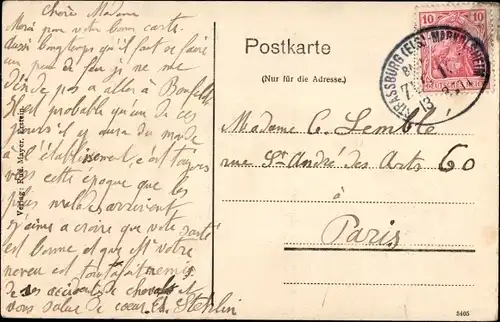 Chère Madame
Merci pour votre bonne carte
aussi longtemps qu'il fait se faire
un peu de je ne me
décide pas a aller à Benfeld
Il est probable qu'un de ces
jours il y aura du monde
à l'établissement, c'est toujours
vers cette époque que les
plus malades arrivent
J'aime a croire que votre santé
est bonne et que Mr votre
neveu est tout à fait remis
de ses accidents de cheval et
vous salue de coeur Stehlin
Verlag: Mayer, Erstein.
Postkarte
(Nur für die Adresse.)
STRASSBURG (ELS)-MARKOLSHEIM
BAHNPOST
13
10 10
DEUTSCHES REICH
Madame C. Lemblé
rue St André des Arts 60
à
Paris
5405